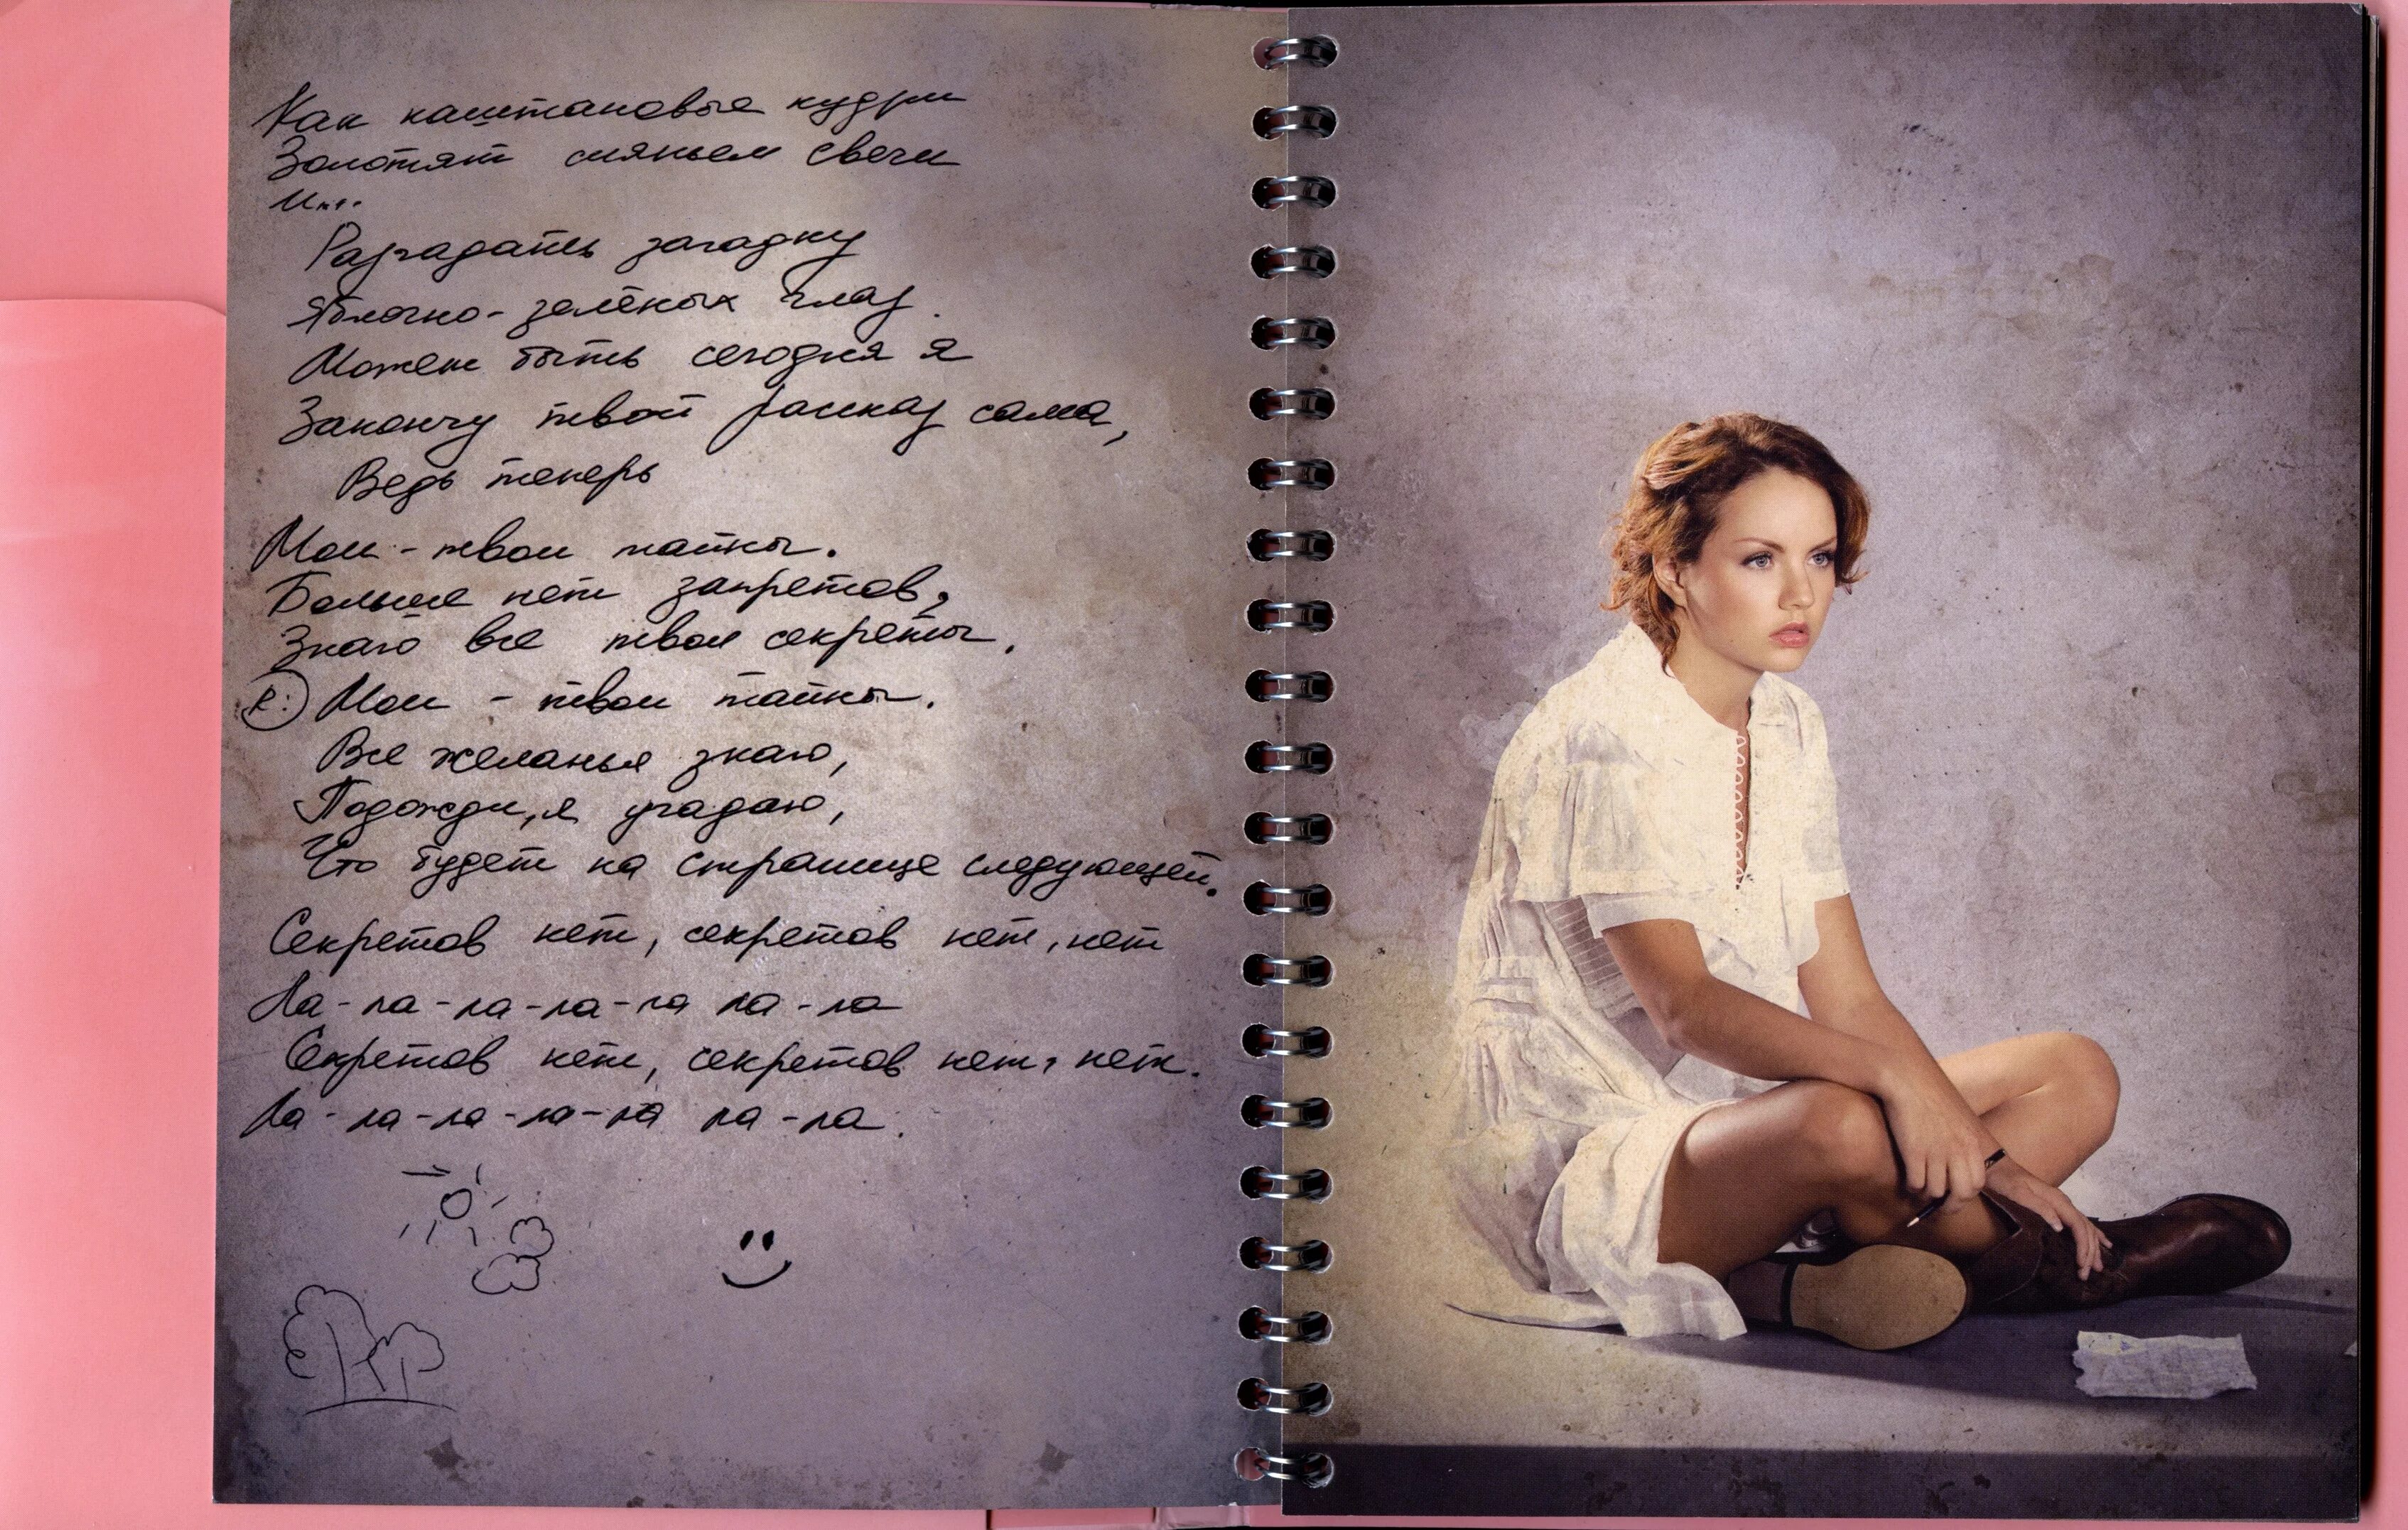 Как каштановые кудри
Золотят сияньем свечи
И...
Разгадать загадку
Яблочно-зелёных глаз.
Может быть сегодня я
Закончу твой рассказ сама,
Ведь теперь
Мои - твои тайны.
Больше нет запретов,
Знаю все твои секреты.
R: Мои - твои тайны.
Все желанья знаю,
Подожди, я угадаю,
Что будет на странице следующей.
Секретов нет, секретов нет, нет
Ла-ла-ла-ла-ла ла-ла
Секретов нет, секретов нет, нет.
Ла-ла-ла-ла-ла ла-ла.